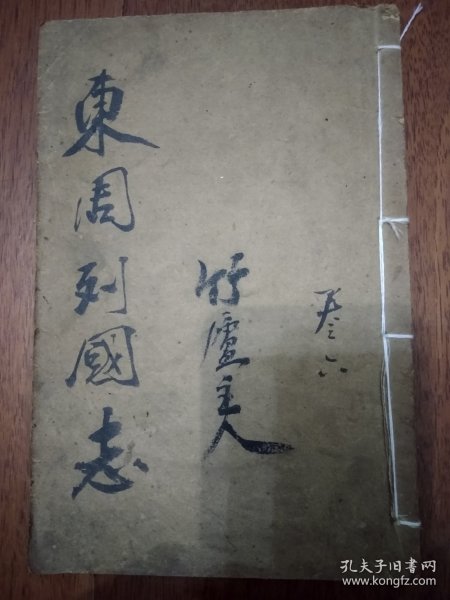 卷六
竹廬主人
東周列國志
孔夫子旧书网
www.kongfz.com